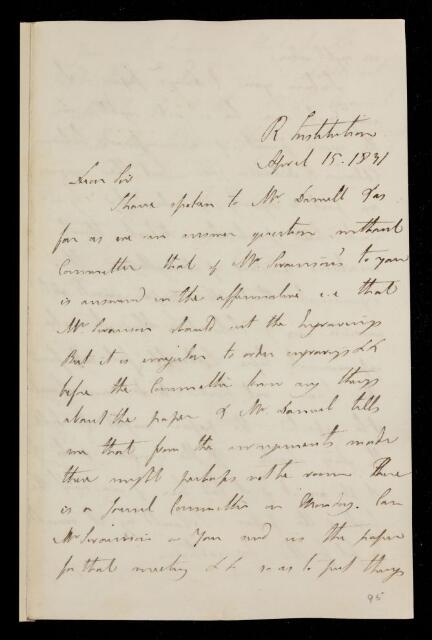 R Institution
April 15. 1831
Dear Sir
I have spoken to Mr Daniell & as
far as we can answer question without
Committee that of Mr Swainson's to you
is answered in the affirmative i.e that
Mr Swainson should cut the Engravings
But it is irregular to order engravings &c
before the Committee know any thing
about the paper & Mr Daniell tells
me that from the arrangements made
there might perhaps not be room There
is a Journal Committee on Monday. Can
Mr Swainson or You send us the paper
for that meeting &c so as to put things
95